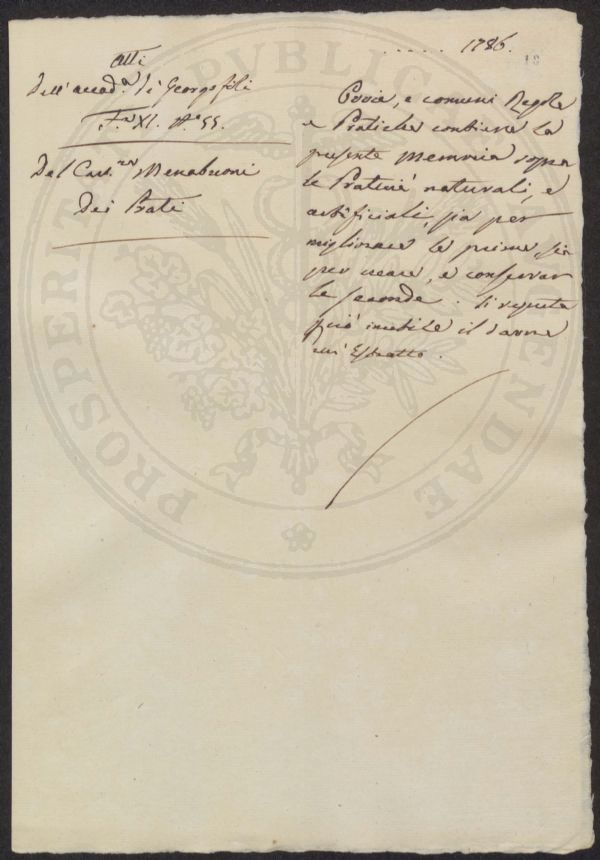 ..... 1786.
18
Atti
dell'accad.a di Georgofili
F.a XI. N.o 55.
Del Cav.er Menabuoni
Dei Prati
Poche, e comuni Regole
e Pratiche contiene la
presente Memoria sopra
le Praterie naturali, e
artificiali, sia per
migliorare le prime, sia
per creare, e conservar
le seconde. Si reputa
più inutile il darne
un' Estratto.
PROSPERITATI PVBLICAE AVGENDAE